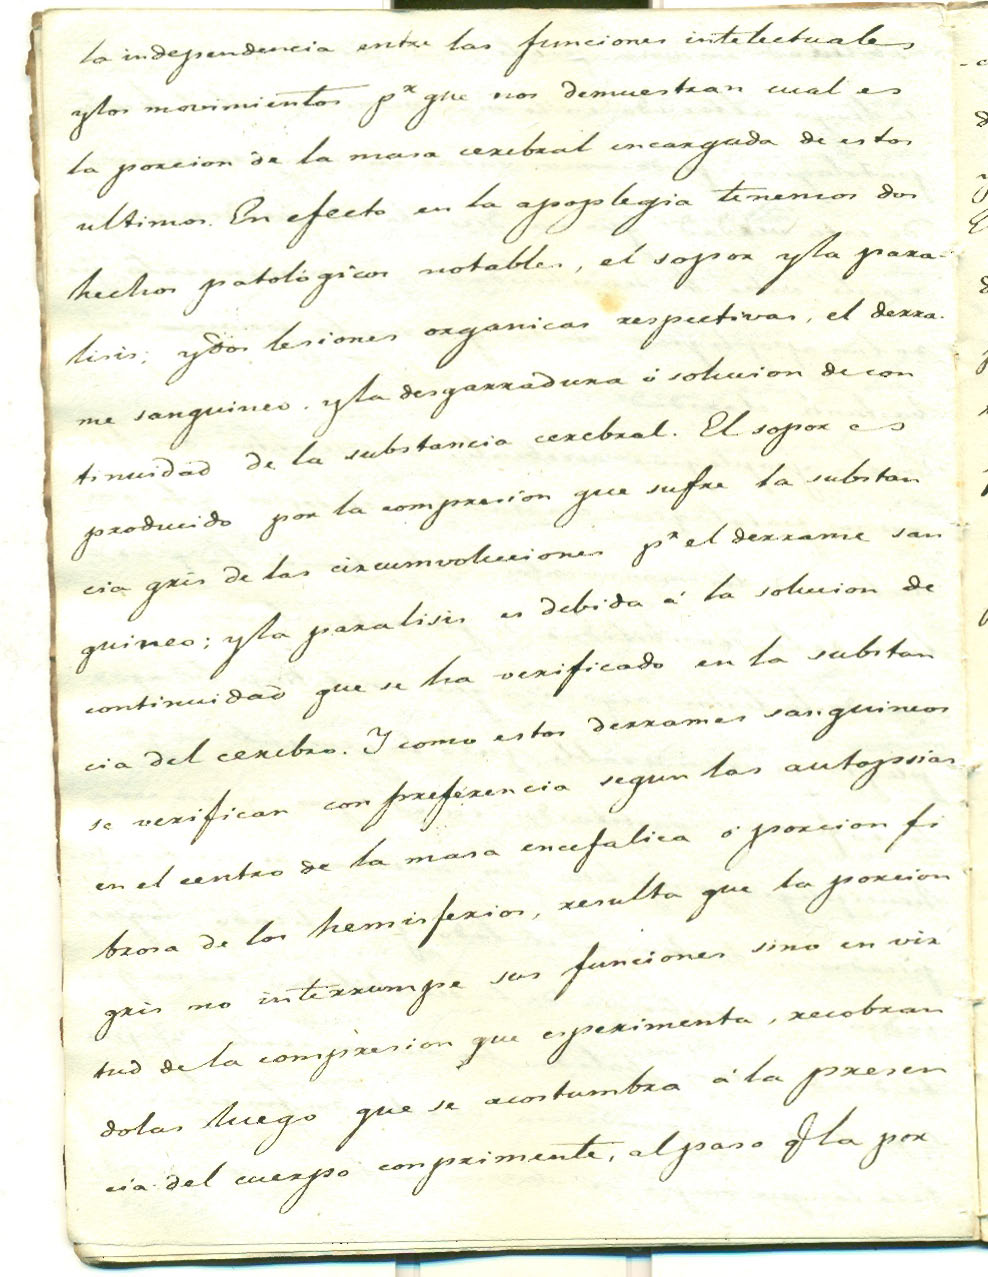 la independencia entre las funciones intelectuales
y los movimientos pr que nos demuestran cual es
la porcion de la masa cerebral encargada de estos
ultimos. En efecto en la apoplegia tenemos dos
hechos patológicos notables, el sopor y la para-
lisis; y dos lesiones organicas respectivas, el derra-
me sanguineo, y la desgarradura ó solucion de con
tinuidad de la substancia cerebral. El sopor es
producido por la compresion que sufre la substan
cia gris de las circumvoluciones pr el derrame san
guineo; y la paralisis es debida á la solucion de
continuidad que se ha verificado en la substan
cia del cerebro. Y como estos derrames sanguineos
se verifican con preferencia segun las autopsias
en el centro de la masa encefalica ó porcion fi
brosa de los hemisferios, resulta que la porcion
gris no interrumpe sus funciones sino en vir
tud de la compresion que esperimenta, recobran
dolas luego que se acostumbra á la presen
cia del cuerpo comprimente, al paso q la por